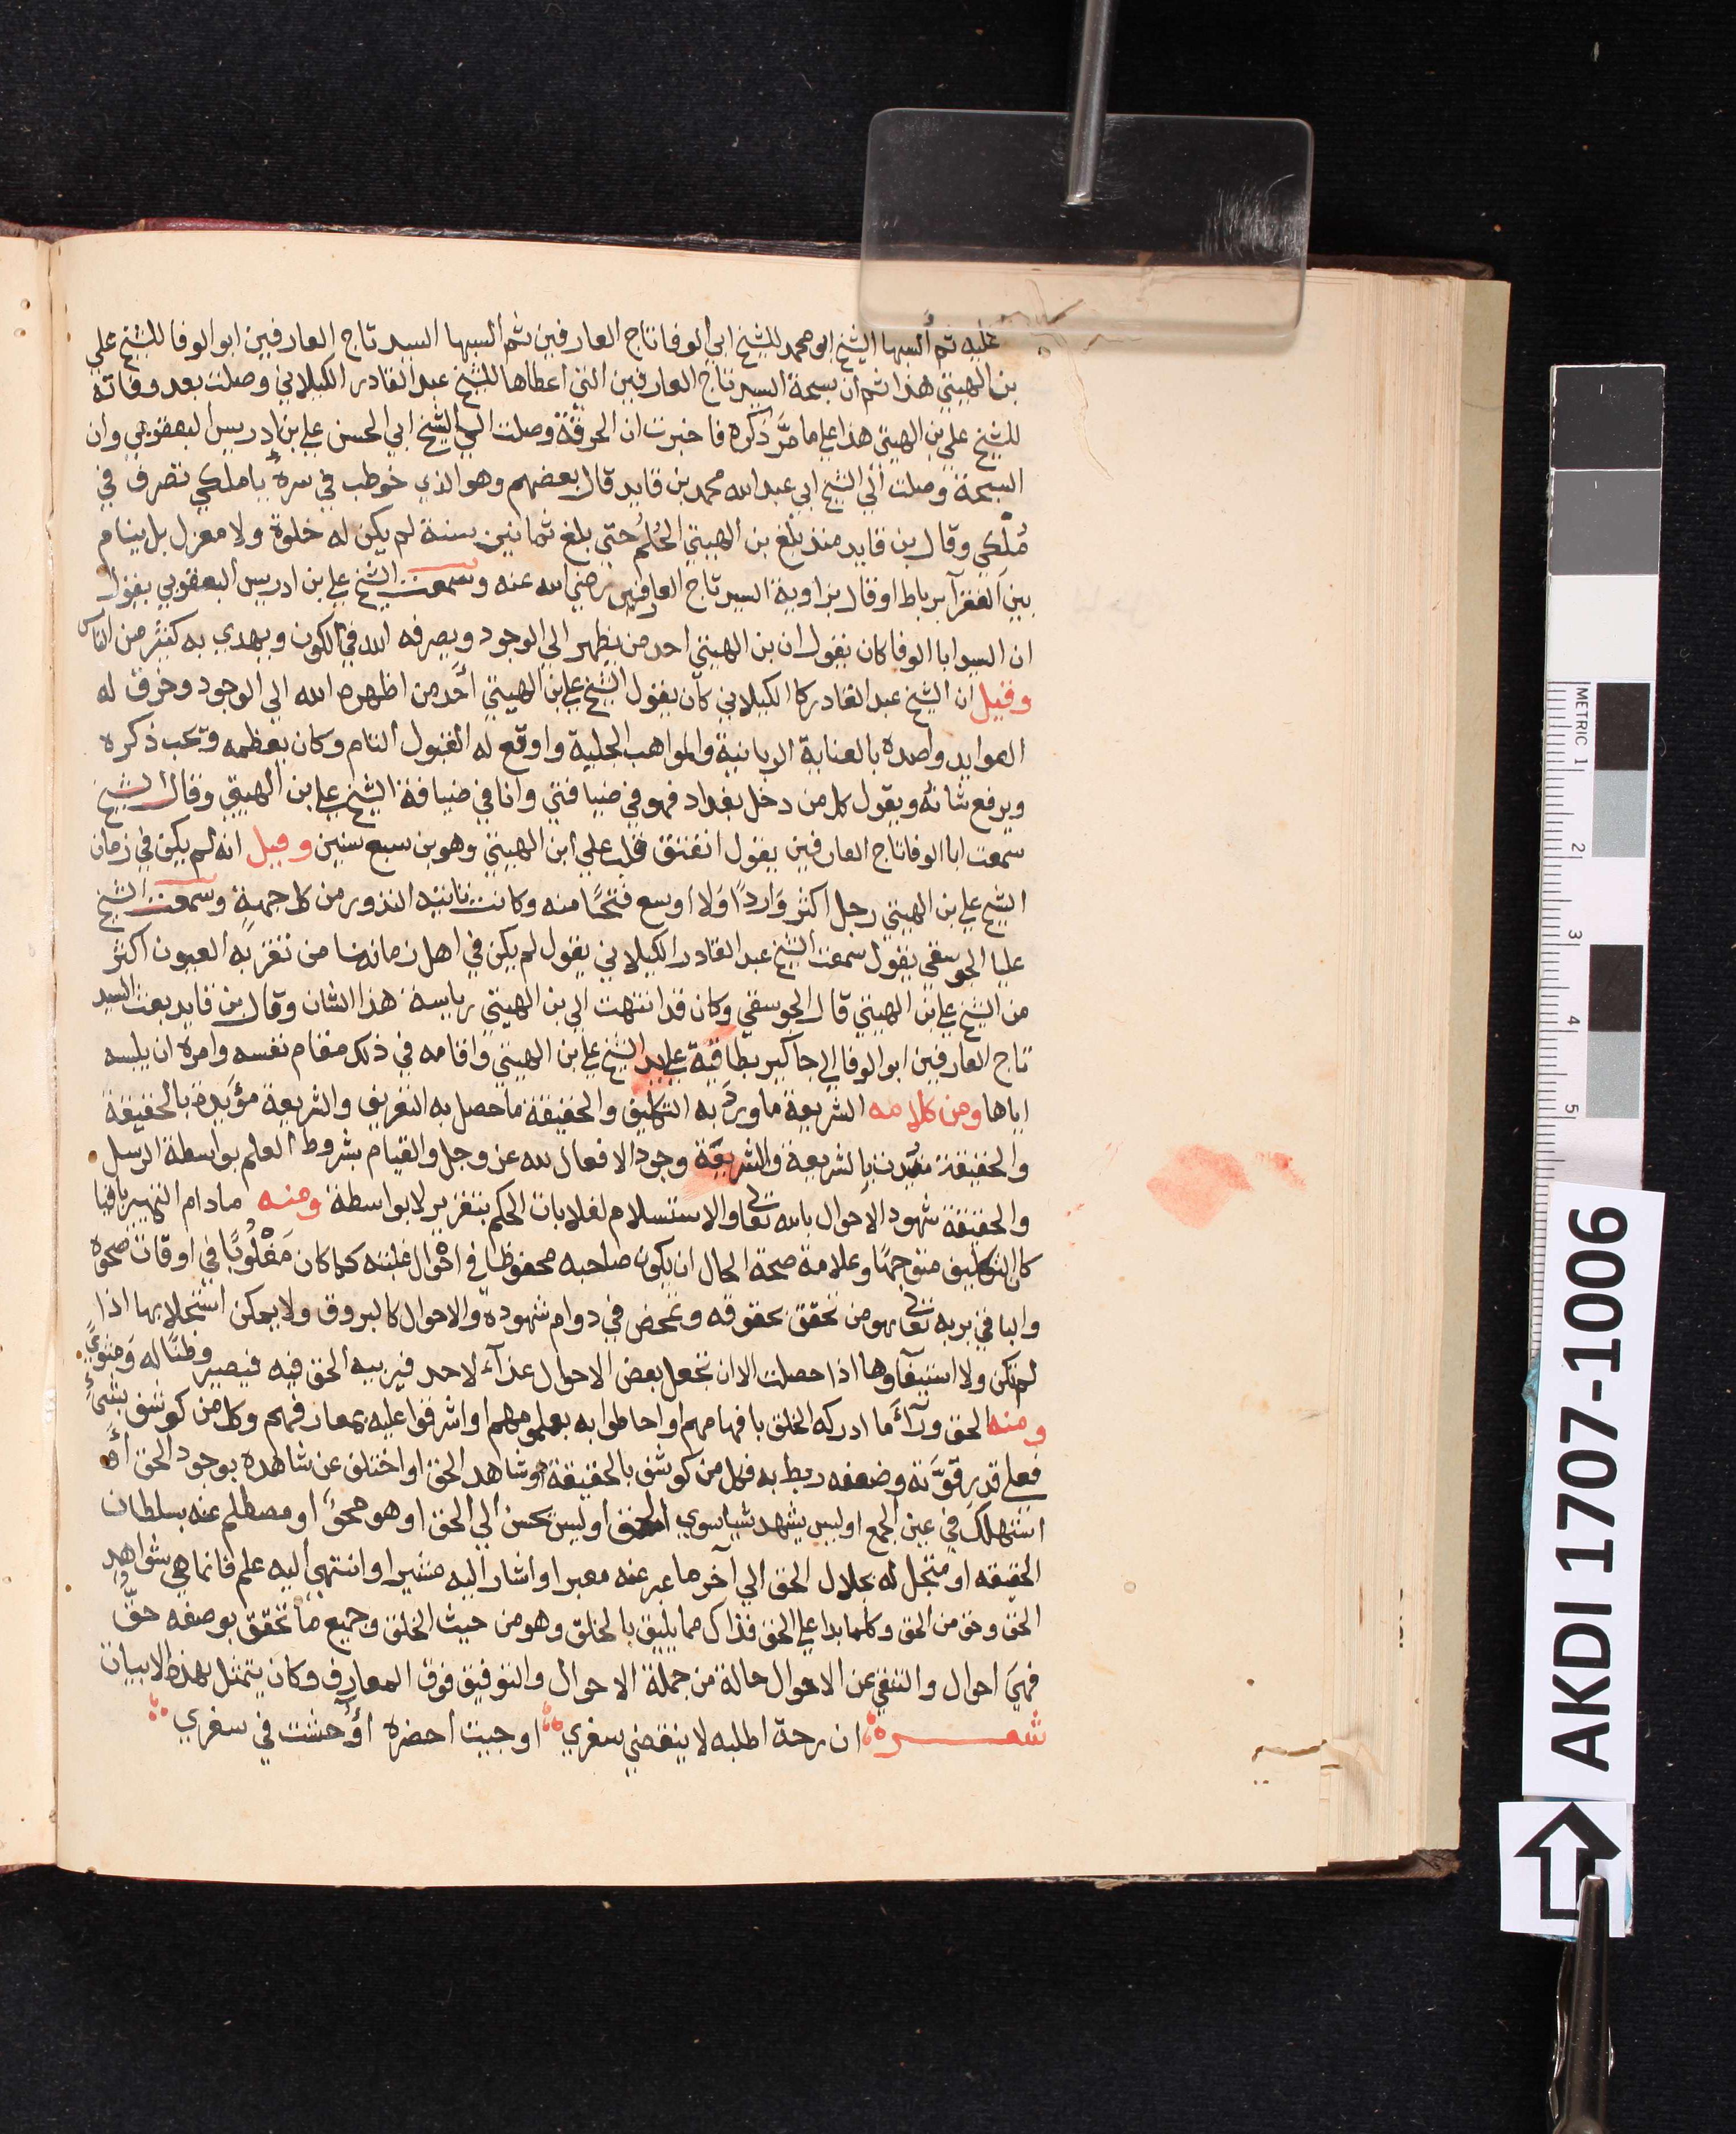 عليه ثم ألبسها الشيخ ابو محمد للشيخ ابي الوفا تاج العارفين ثم البسها السيد تاج العارفين ابو الوفا للشيخ علي
بن الهيتي هذا ثم ان سبحة السيد تاج العارفين التي اعطاها للشيخ عبد القادر الكيلاني وصلت بعد وفاته
للشيخ علي بن الهيتي هذا علي ما مرَّ ذكره فاخبرت ان الخرقة وصلت الي الشيخ ابي الحسن علي بن ادريس البعقوبي وان
السبحة وصلت الي الشيخ ابي عبد الله محمد بن قايد قال بعضهم وهو الذي خوطب في سره يا ملكي تصرف في
مُلكي وقال بن قايد منذ بلغ بن الهيتي الحُلُم حتي بلغ ثمانين سنة لم يكن له خلوة ولا معزل بل ينام
بين الفقرآ برباط اوقال بزاوية السيد تاج العارفين رضي الله عنه وسمعت الشيخ علي بن ادريس البعقوبي يقول
ان السيد ابا الوفا كان يقول ان بن الهيتي احد من يظهر الي الوجود ويصرفه الله في الكون ويهدي به كثير من الناس
وقيل ان الشيخ عبد القادر كا الكيلاني كان يقول الشيخ علي بن الهيتي أحد من اظهره الله الي الوجود وخرق له
العوايد وامده بالعناية الربانية والمواهب الجلية واوقع له القبول التام وكان يعظمه ويحب ذكره
ويرفع شانه ويقول كل من دخل بغداد فهو في ضيافتي وانا في ضيافة الشيخ علي بن الهيتي وقال الشيخ
سمعت ابا الوفا تاج العارفين يقول انفتق قلب علي ابن الهيتي وهو بن سبع سنين وقيل انه لم يكن في زمان
الشيخ علي بن الهيتي رجل اكثر وَارداً وَلا اوسع فتحًا منه وكانت تاتيه النذور من كل جهةٍ وسمعت الشيخ
عليا الجوسقي يقول سمعت الشيخ عبد القادر الكيلاني يقول لم يكن في اهل زماننا من تقر به العيون اكثر
من الشيخ علي بن الهيتي قال الجوسقي وكان قد انتهت الي بن الهيتي رياسة هذا الشان وقال بن قايد بعث السيد
تاج العارفين ابو الوفا الي جاكير بطاقية علي يد الشيخ علي بن الهيتي واقامه في ذلك مقام نفسه وامره ان يلبسه
اياها ومن كلامه الشريعة ما ورد به التكليف والحقيقة ما حصل به التعريف والشريعة مؤيدة بالحقيقة
والحقيقة مقيدت بالشريعة والشريعة وجود الافعال لله عز وجل والقيام بشروط العلم بواسطة الرسل
والحقيقة شهود الاحوال بالله تعالي والاستسلام لغلابات الحكم بتقزير لا بواسطة ومنه مادام التميز باقيا
كان التكليف متوجهًا وعلامة صحة الحال ان يكون صاحبه محفوظا في احْوال غلبته كما كان مَغلُوبًا في اوقات صحوه
والباقي بربه تعالي هو من تحقق بحقوقه وتمحض في دوام شهوده والاحوال كالبروق ولا يمكن استجلابها اذا
لم تكن ولا استبقآوها اذا حصلت الا ان تجعل بعض الاحوال غذآء لاحد فيربيه الحق فيه فيصير وطنًا له
ومنه الحق ورآءَ ما ادركه الخلق بافهامهم او احاطوا به بعلمومهم او اشرفوا عليه بمعارفهم وكل من كوشف بشيءٍ
فعلي قدرِ قوَّته وضعفه ربط به فكل من كوشف بالحقيقة او شاهد الحق او اختلف عن شاهده بوجود الحق أَو
استهلك في عين الجمع او ليس يشهد شيا سوي الحق او ليس يحس الي الحق او هو محوٌ او مصطلم عنه بسلطان
الحقيقه او متجل له بجلال الحق الي آخر ما عبر عنه معبر او اشار اليه مشير او انتهي اليه علم فانما هي شواهد
الحق وحق من الحق وكلما بدا علي الحق فذاك مما يليق بالخلق وهو من حيث الخلق وجميع ما تحقق بوصفه حقٌّ
فهيَ احوال والتنقي عن الاحوال حالة من جملة الاحوال والتوفيق فوق المعارف وكان يتمثل بهذه الابيات
شعره ان رحة اطلبه لا ينقضي سفري او جيت احضره أوحشت في سفري